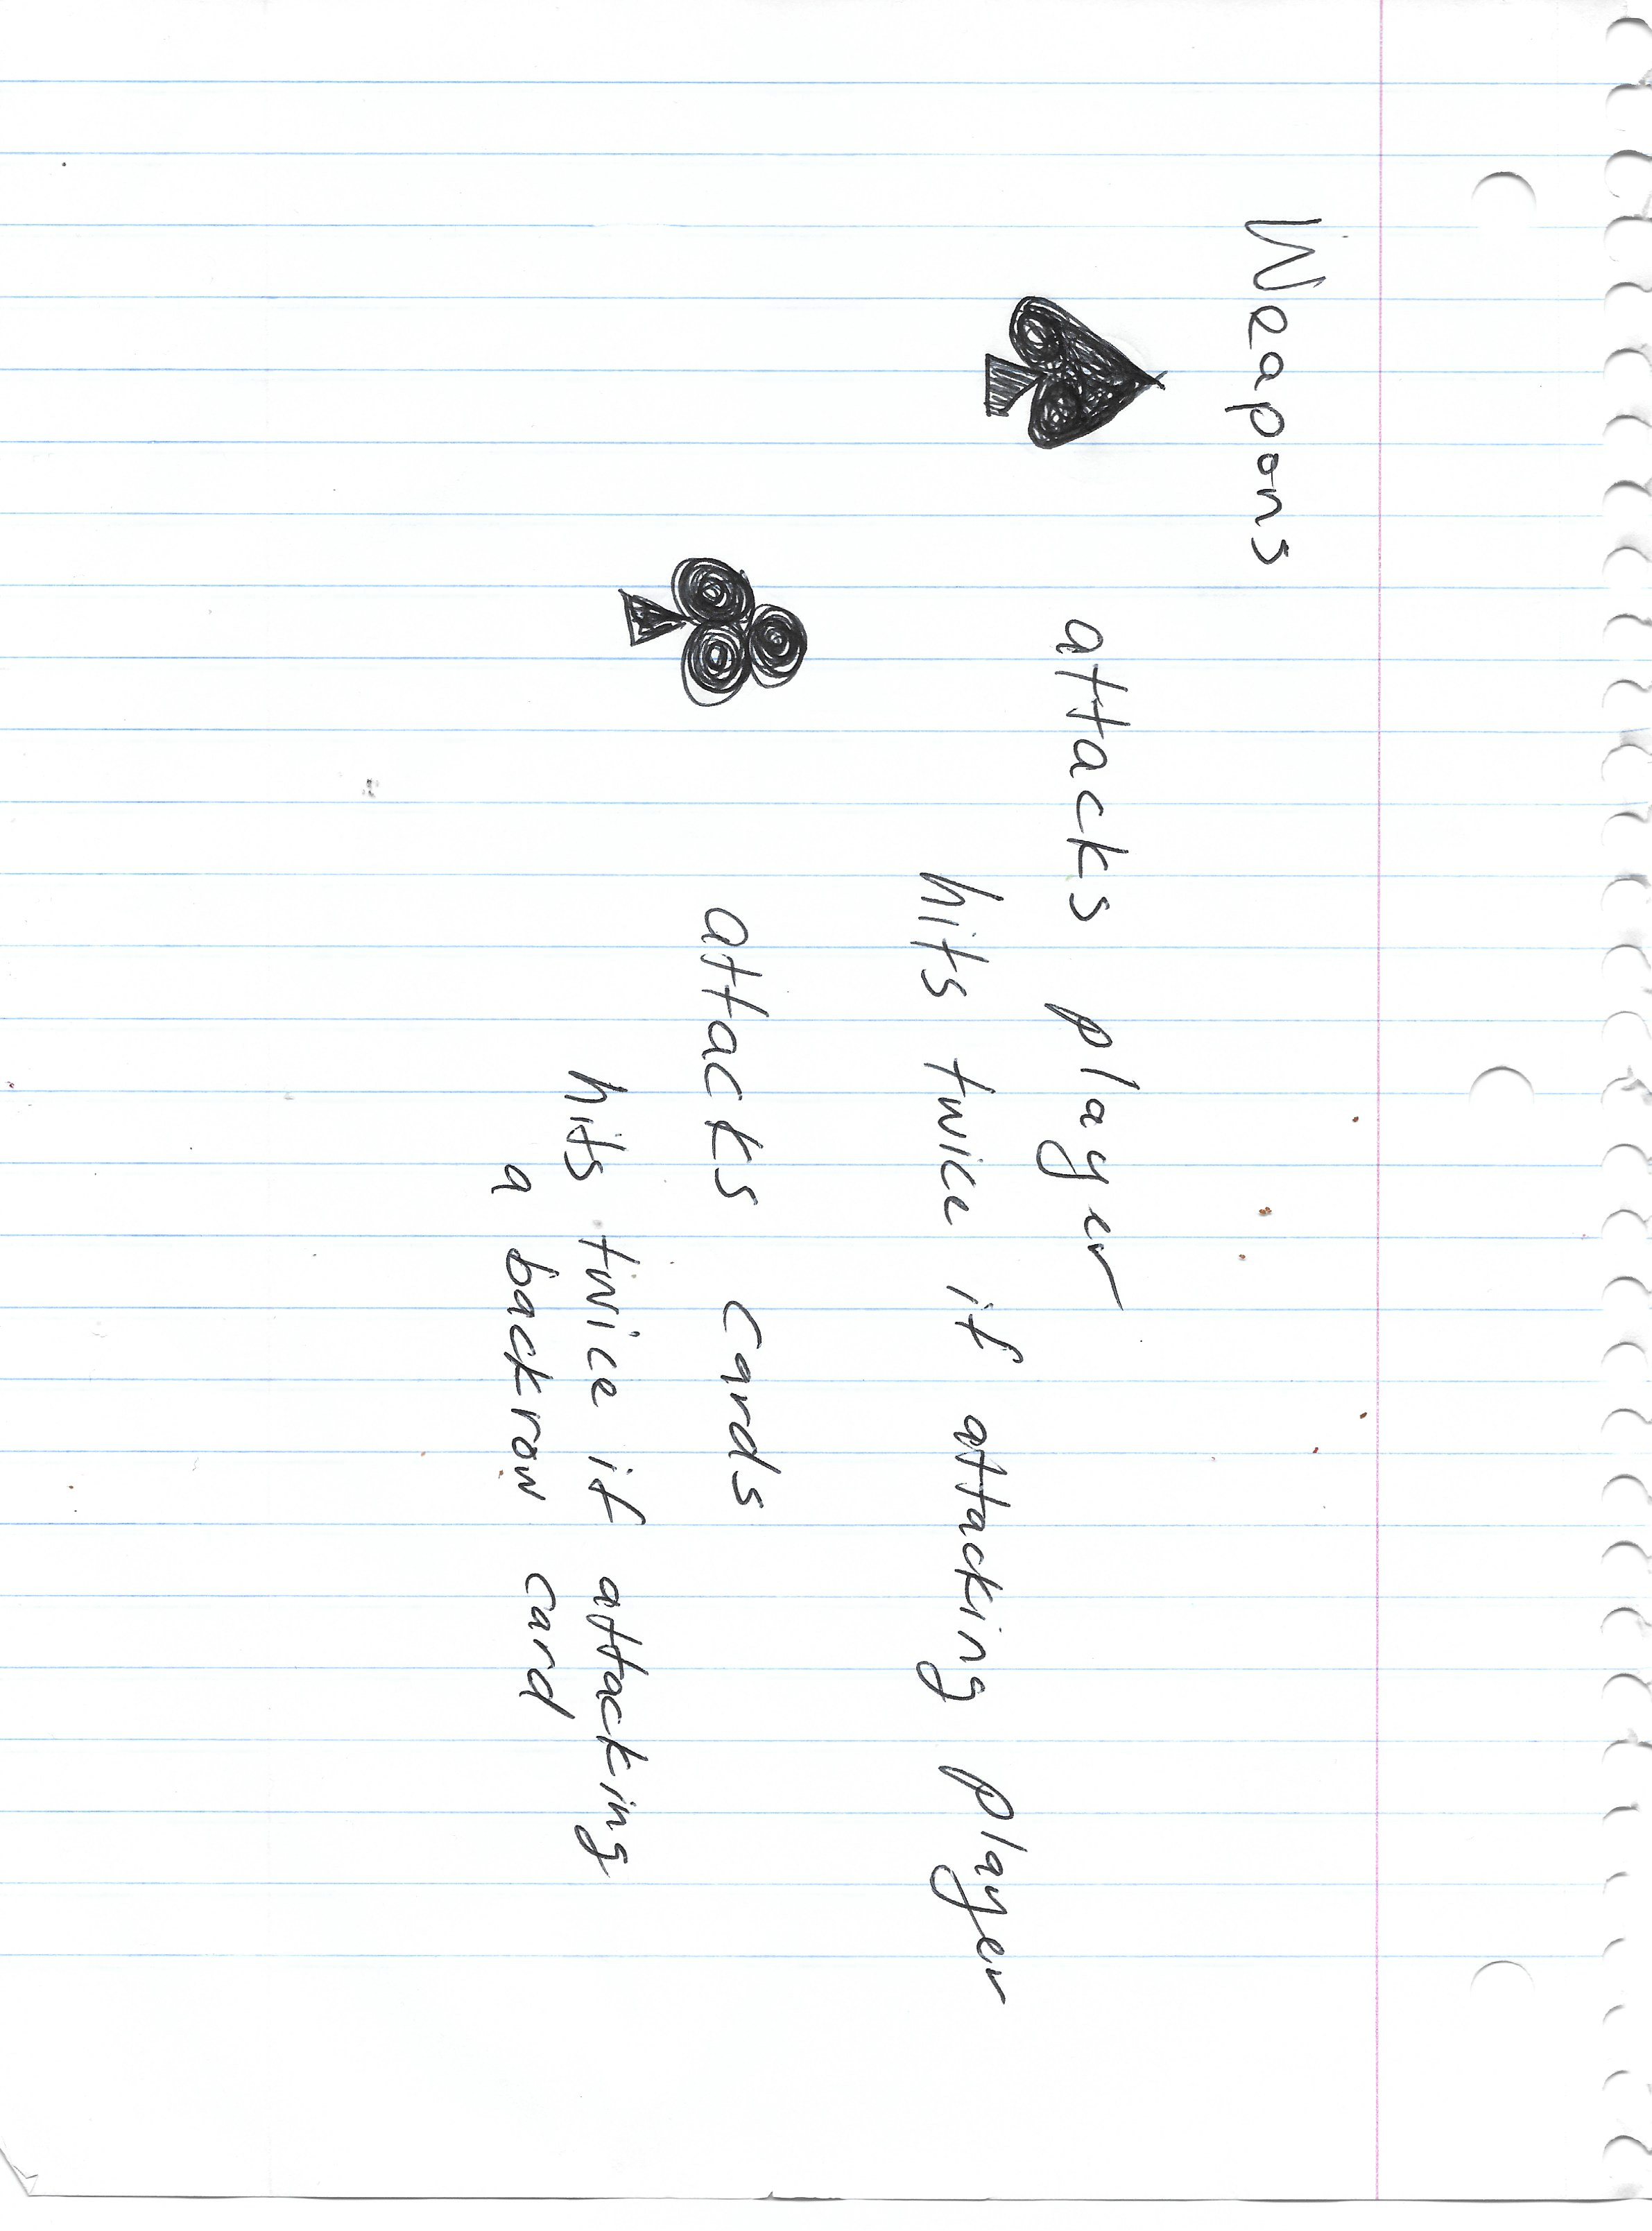 Weapons
attacks player
hits twice if attacking player
attacks cards
hits twice if attacking
a backrow card